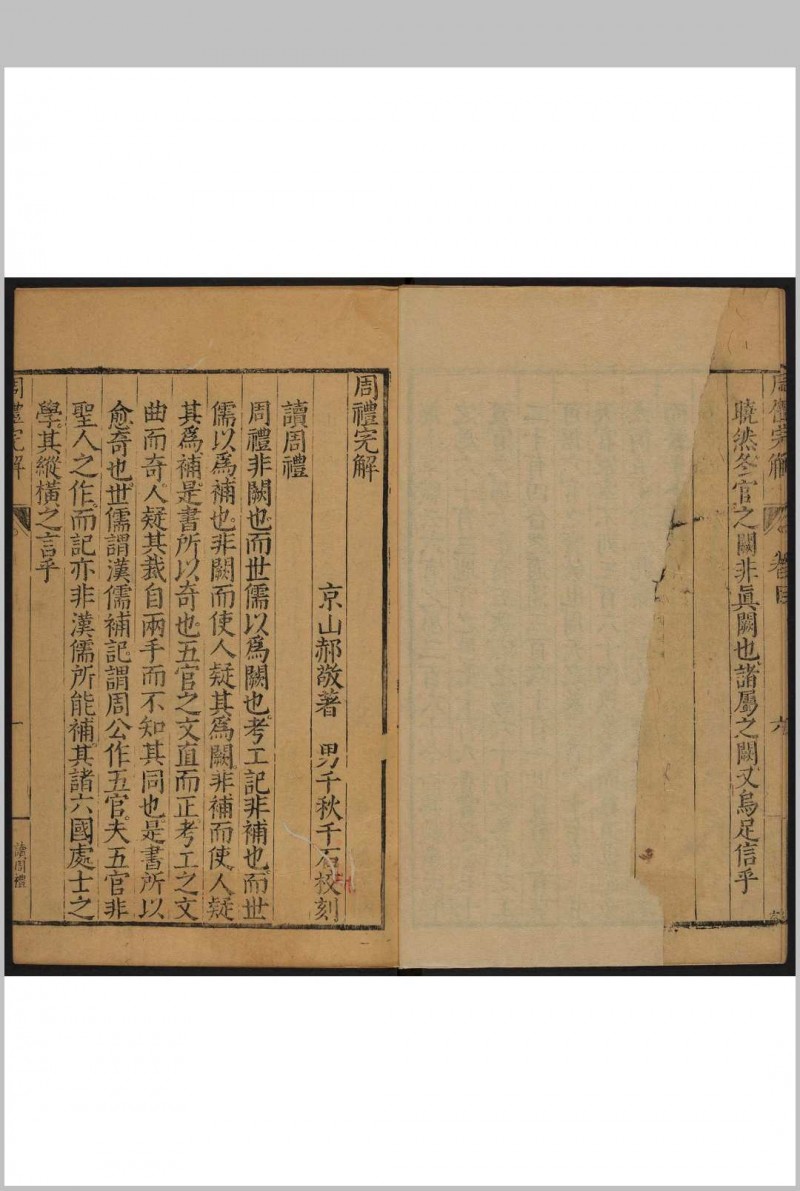 周禮完解
曉然冬官之闕非真闕也諸屬之闕又烏足信乎
周禮完解
京山郝敬著　男千秋千石校刻
讀周禮
周禮非闕也而世儒以爲闕也考工記非補也而世
儒以爲補也非闕而使人疑其爲闕非補而使人疑
其爲補是書所以奇也五官之文直而正考工之文
曲而奇人疑其裁自兩手而不知其同也是書所以
愈奇也世儒謂漢儒補記謂周公作五官夫五官非
聖人之作而記亦非漢儒所能補其諸六國處士之
學其縱橫之言乎
周禮完解
讀周禮